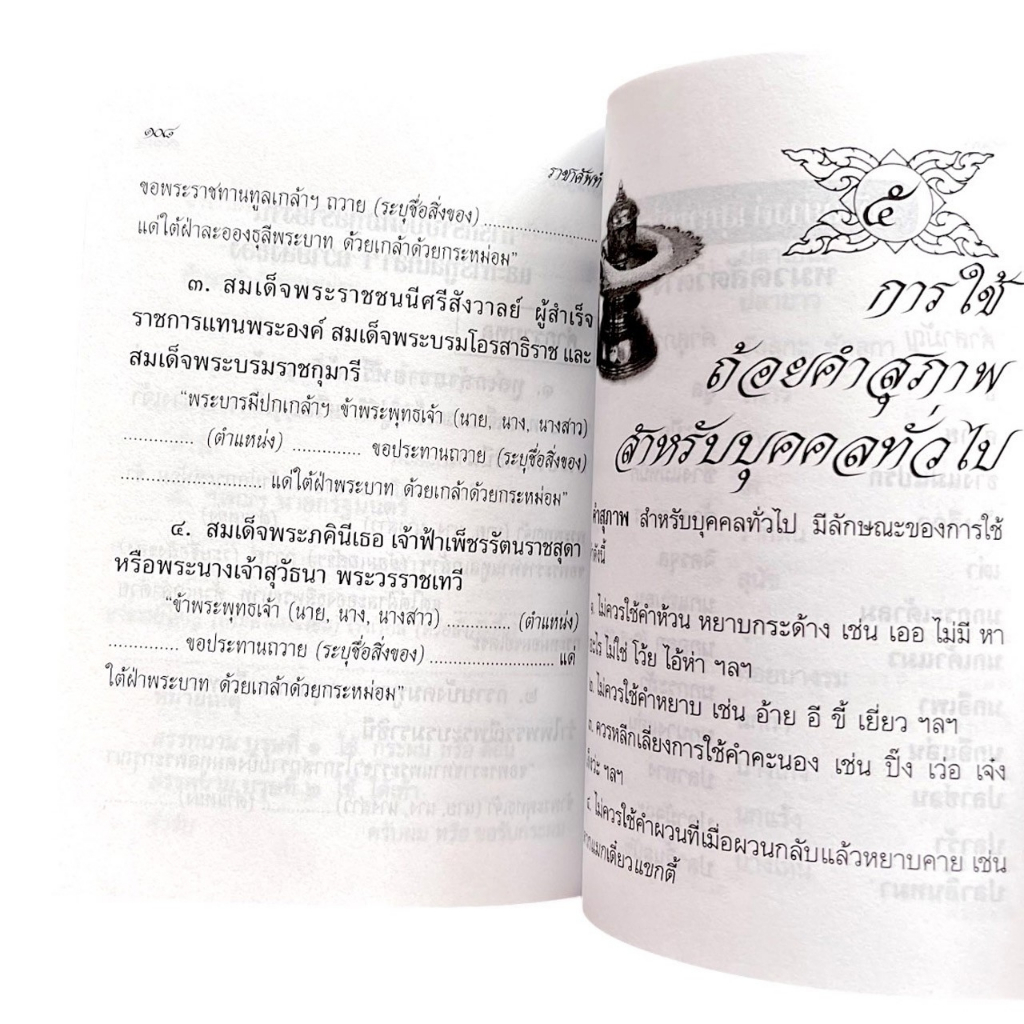 ๑๐๘
ราชาศัพท์
ขอพระราชทานทูลเกล้าฯ ถวาย (ระบุชื่อสิ่งของ) ..............................
แด่ใต้ฝ่าละอองธุลีพระบาท ด้วยเกล้าด้วยกระหม่อม”
๓. สมเด็จพระราชชนนีศรีสังวาลย์ ผู้สำเร็จ
ราชการแทนพระองค์ สมเด็จพระบรมโอรสาธิราช และ
สมเด็จพระบรมราชกุมารี
“พระบารมีปกเกล้าฯ ข้าพระพุทธเจ้า (นาย, นาง, นางสาว)
.............. (ตำแหน่ง) .............. ขอประทานถวาย (ระบุชื่อสิ่งของ)
.................. แด่ใต้ฝ่าพระบาท ด้วยเกล้าด้วยกระหม่อม”
๔. สมเด็จพระภคินีเธอ เจ้าฟ้าเพ็ชรรัตนราชสุดา
หรือพระนางเจ้าสุวัธนา พระวรราชเทวี
“ข้าพระพุทธเจ้า (นาย, นาง, นางสาว) ............. (ตำแหน่ง)
.............. ขอประทานถวาย (ระบุชื่อสิ่งของ) ......................... แด่
ใต้ฝ่าพระบาท ด้วยเกล้าด้วยกระหม่อม”
๕
การใช้
ถ้อยคำสุภาพ
สำหรับบุคคลทั่วไป
คำสุภาพ สำหรับบุคคลทั่วไป มีลักษณะของการใช้
ดังนี้
๑. ไม่ควรใช้คำห้วน หยาบกระด้าง เช่น เออ ไม่มี หา
อะไร ไม่ใช่ โว้ย ไอ้ห่า ฯลฯ
๒. ไม่ควรใช้คำหยาบ เช่น อ้าย อี ขี้ เยี่ยว ฯลฯ
๓. ควรหลีกเลี่ยงการใช้คำคะนอง เช่น ปิ๊ง เว่อ เจ๋ง
ฯลฯ
๔. ไม่ควรใช้คำผวนที่เมื่อผวนกลับแล้วหยาบคาย เช่น